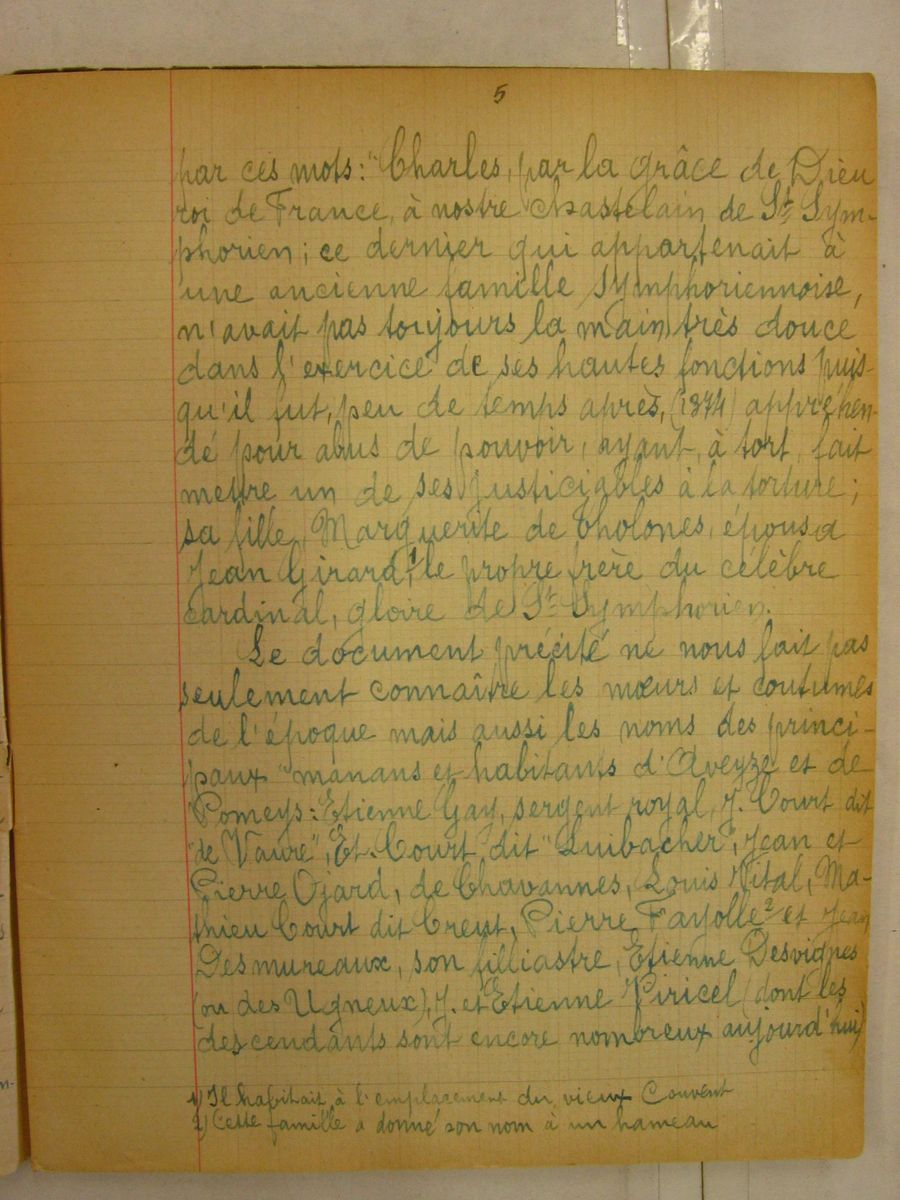 5
par ces mots: "Charles, par la grâce de Dieu
roi de France, à nostre Chastelain de St Sym-
phorien; ce dernier qui appartenait à
une ancienne famille Symphoriennoise,
n'avait pas toujours la main très douce
dans l'exercice de ses hautes fonctions puis-
qu'il fut, peu de temps après, (1374) appréhen-
dé pour abus de pouvoir, ayant, à tort, fait
mettre un de ses justiciables à la torture;
sa fille, Marguerite de Tholones, épousa
Jean Girard,1 le propre frère du célèbre
cardinal, gloire de St Symphorien.
Le document précité ne nous fait pas
seulement connaître les mœurs et coutumes
de l'époque mais aussi les noms des princi-
paux "manans et habitants d'Aveyze et de
Pomeys: Etienne Gay, sergent royal, J. Court dit
"de Vaure", Et. Court dit "Luibacher", Jean et
Pierre Ojard, de Chavannes, Louis Vital, Ma-
thieu Court dit Creut, Pierre Fayolle2 et Jean
Desmureaux, son filliastre, Etienne Desvignes
(ou des Vgneux), J. et Etienne Piricel (dont les
descendants sont encore nombreux aujourd'hui)
1) Il habitait à l'emplacement du vieux Couvent
2) Cette famille a donné son nom à un hameau